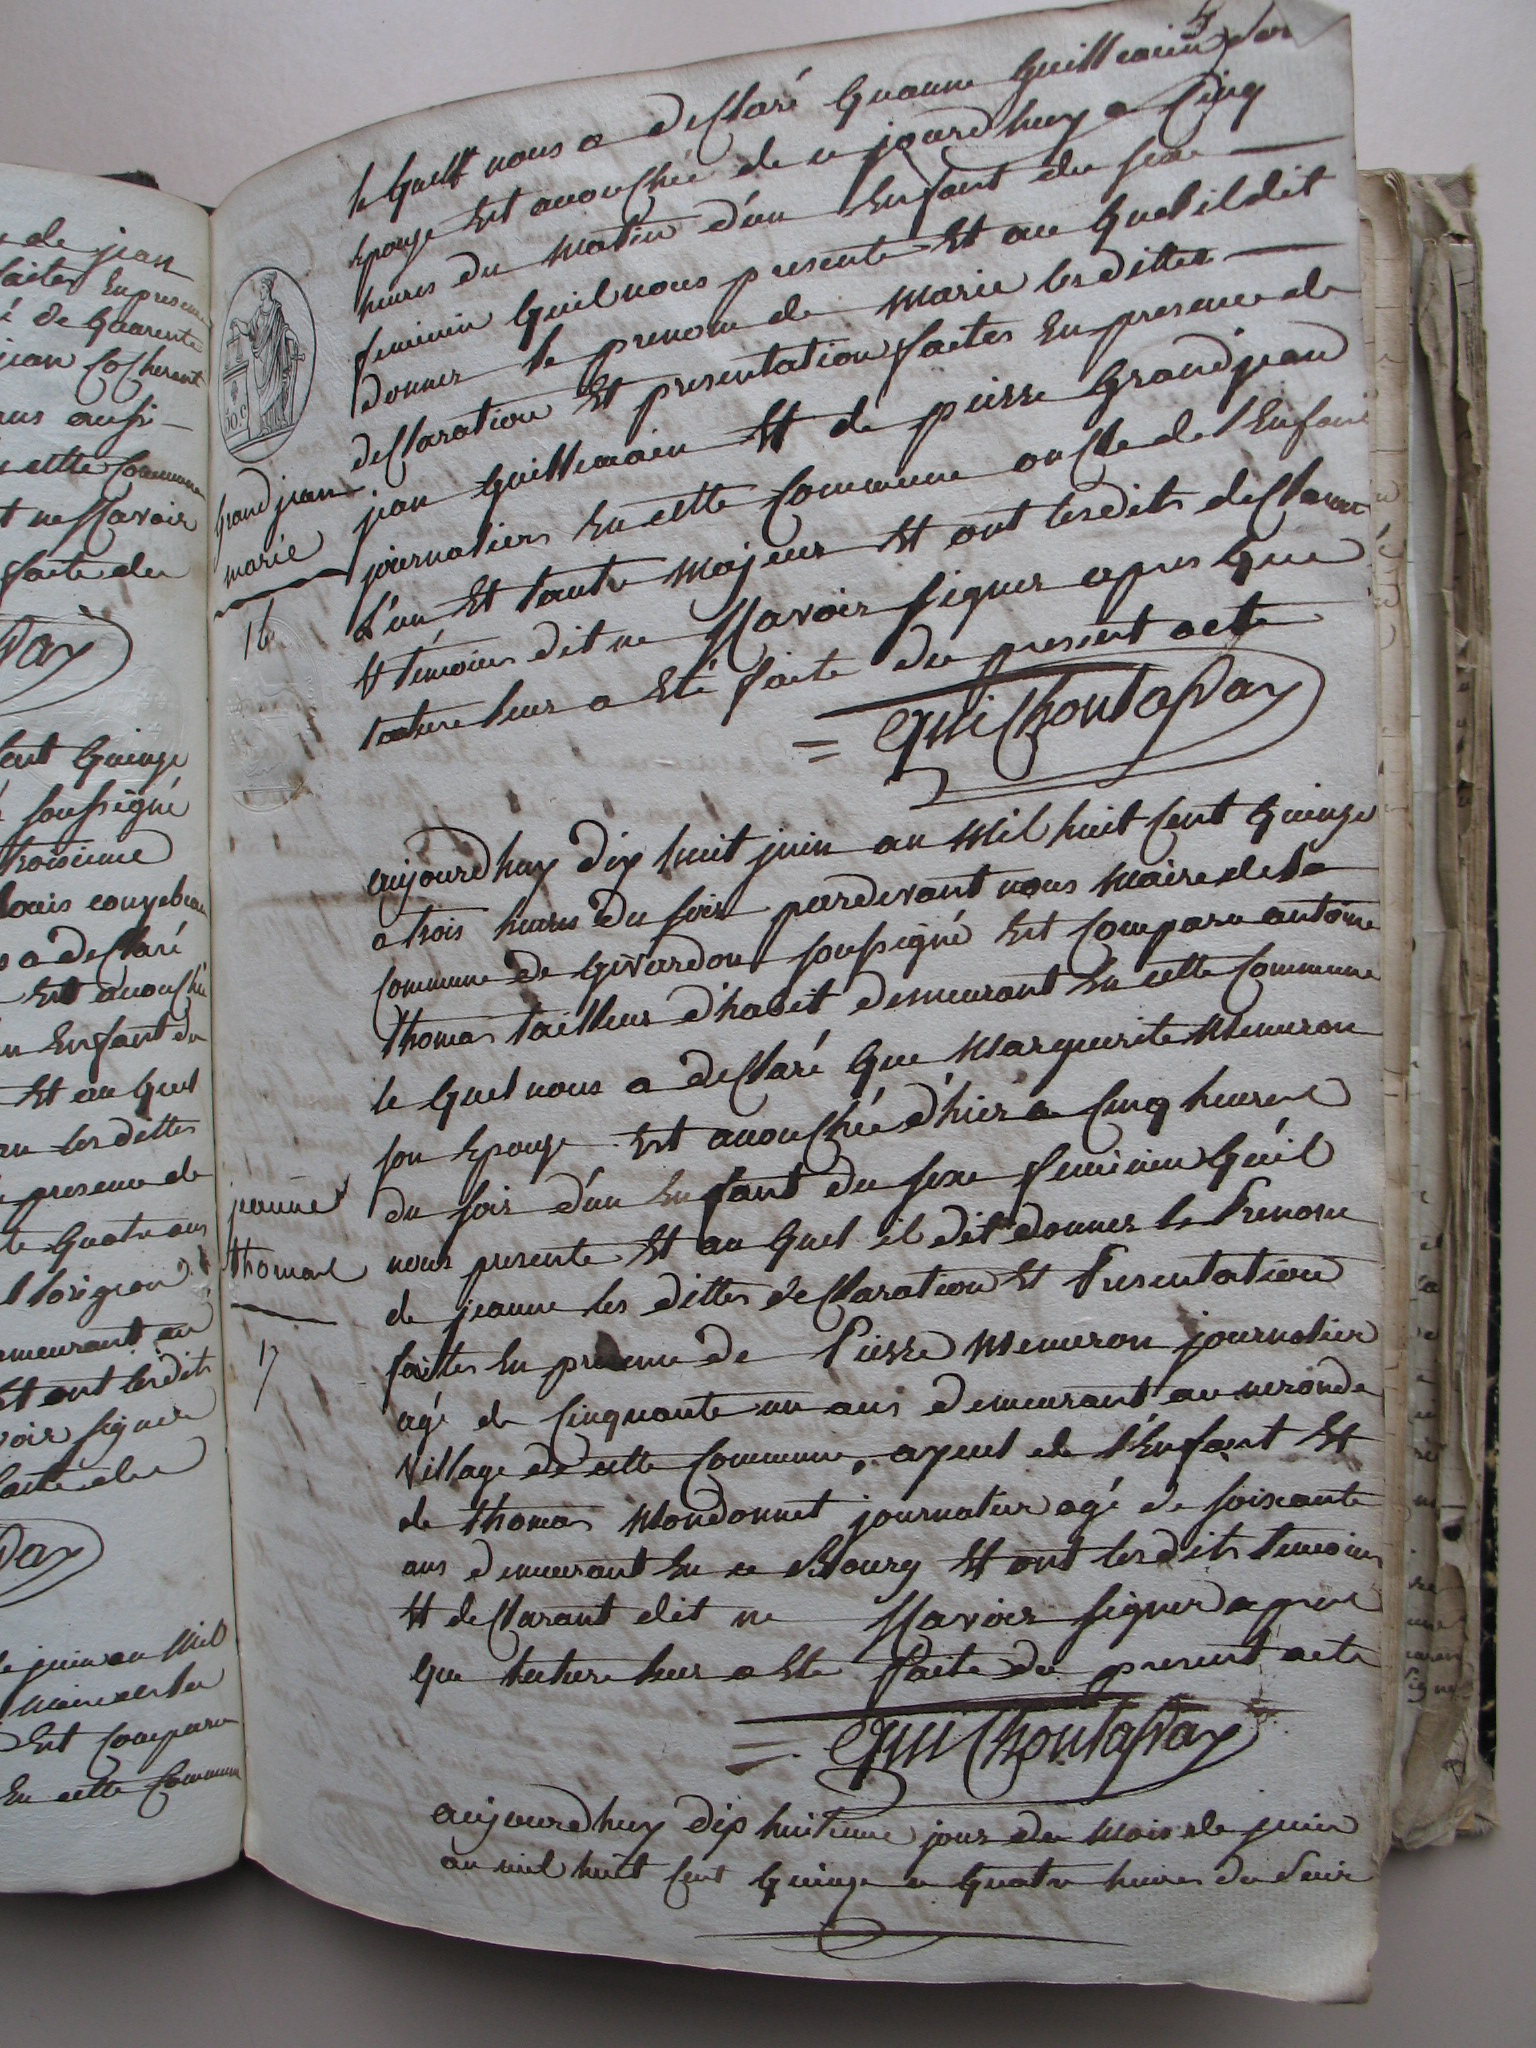 5
le quel nous a declaré quanne Guillemain son
epouze est accouchée de ce jourdhuy a cinq
heures du matin d'un enfant du sexe
feminin quil nous presente et au quel il dit
donner le prenom de marie lesdittes
declaration et presentation faites en presence de
jean Guillemain et de pierre Grandjean
journaliers en cette commune oncle de l'enfant
L'un et l'autre majeur et ont lesdits declarant
et témoins dit ne sçavoir signer apres que
lecture leur a eté faite du present acte
GuiChontaday
50.c
grandjean
marie
16
aujourdhuy dix huit juin an mil huit cent quinze
a trois heures du soir pardevant nous maire de la
commune de Givardon soussigné est comparu antoine
thomas tailleur d'habit demeurant en cette commune
le quel nous a declaré que marguerite Meneron
son epouze est accouchée d'hier a cinq heures
du soir d'un enfant du sexe feminin quil
nous presente et au quel il dit donner le prenom
de jeanne les dittes declaration et presentation
faites en presence de pierre Meneron journalier
agé de cinquante un ans demeurant au
village de cette commune, ayeul de l'enfant et
de thomas Mondonnet journalier agé de soixante
ans demeurant en ce Bourg et ont lesdits temoins
et declarant dit ne sçavoir signer apres
que lecture leur a eté faite du present acte
GuiChontaday
jeanne
thomas
17
aujourdhuy dix huitieme jour du mois de juin
an mil huit cent quinze a quatre heures du soir
de jean
faites en presence
de quarente
jean Cocherent
ans aussi
cette commune
ne sçavoir
faite du
cent quinze
soussigné
troisieme
a declaré
est accouchée
enfant du
et au quel
les dittes
presence de
quatre ans
demeurant au
et ont lesdits
signer
faite du
juin an mil
maire de la
est comparu
en cette commune